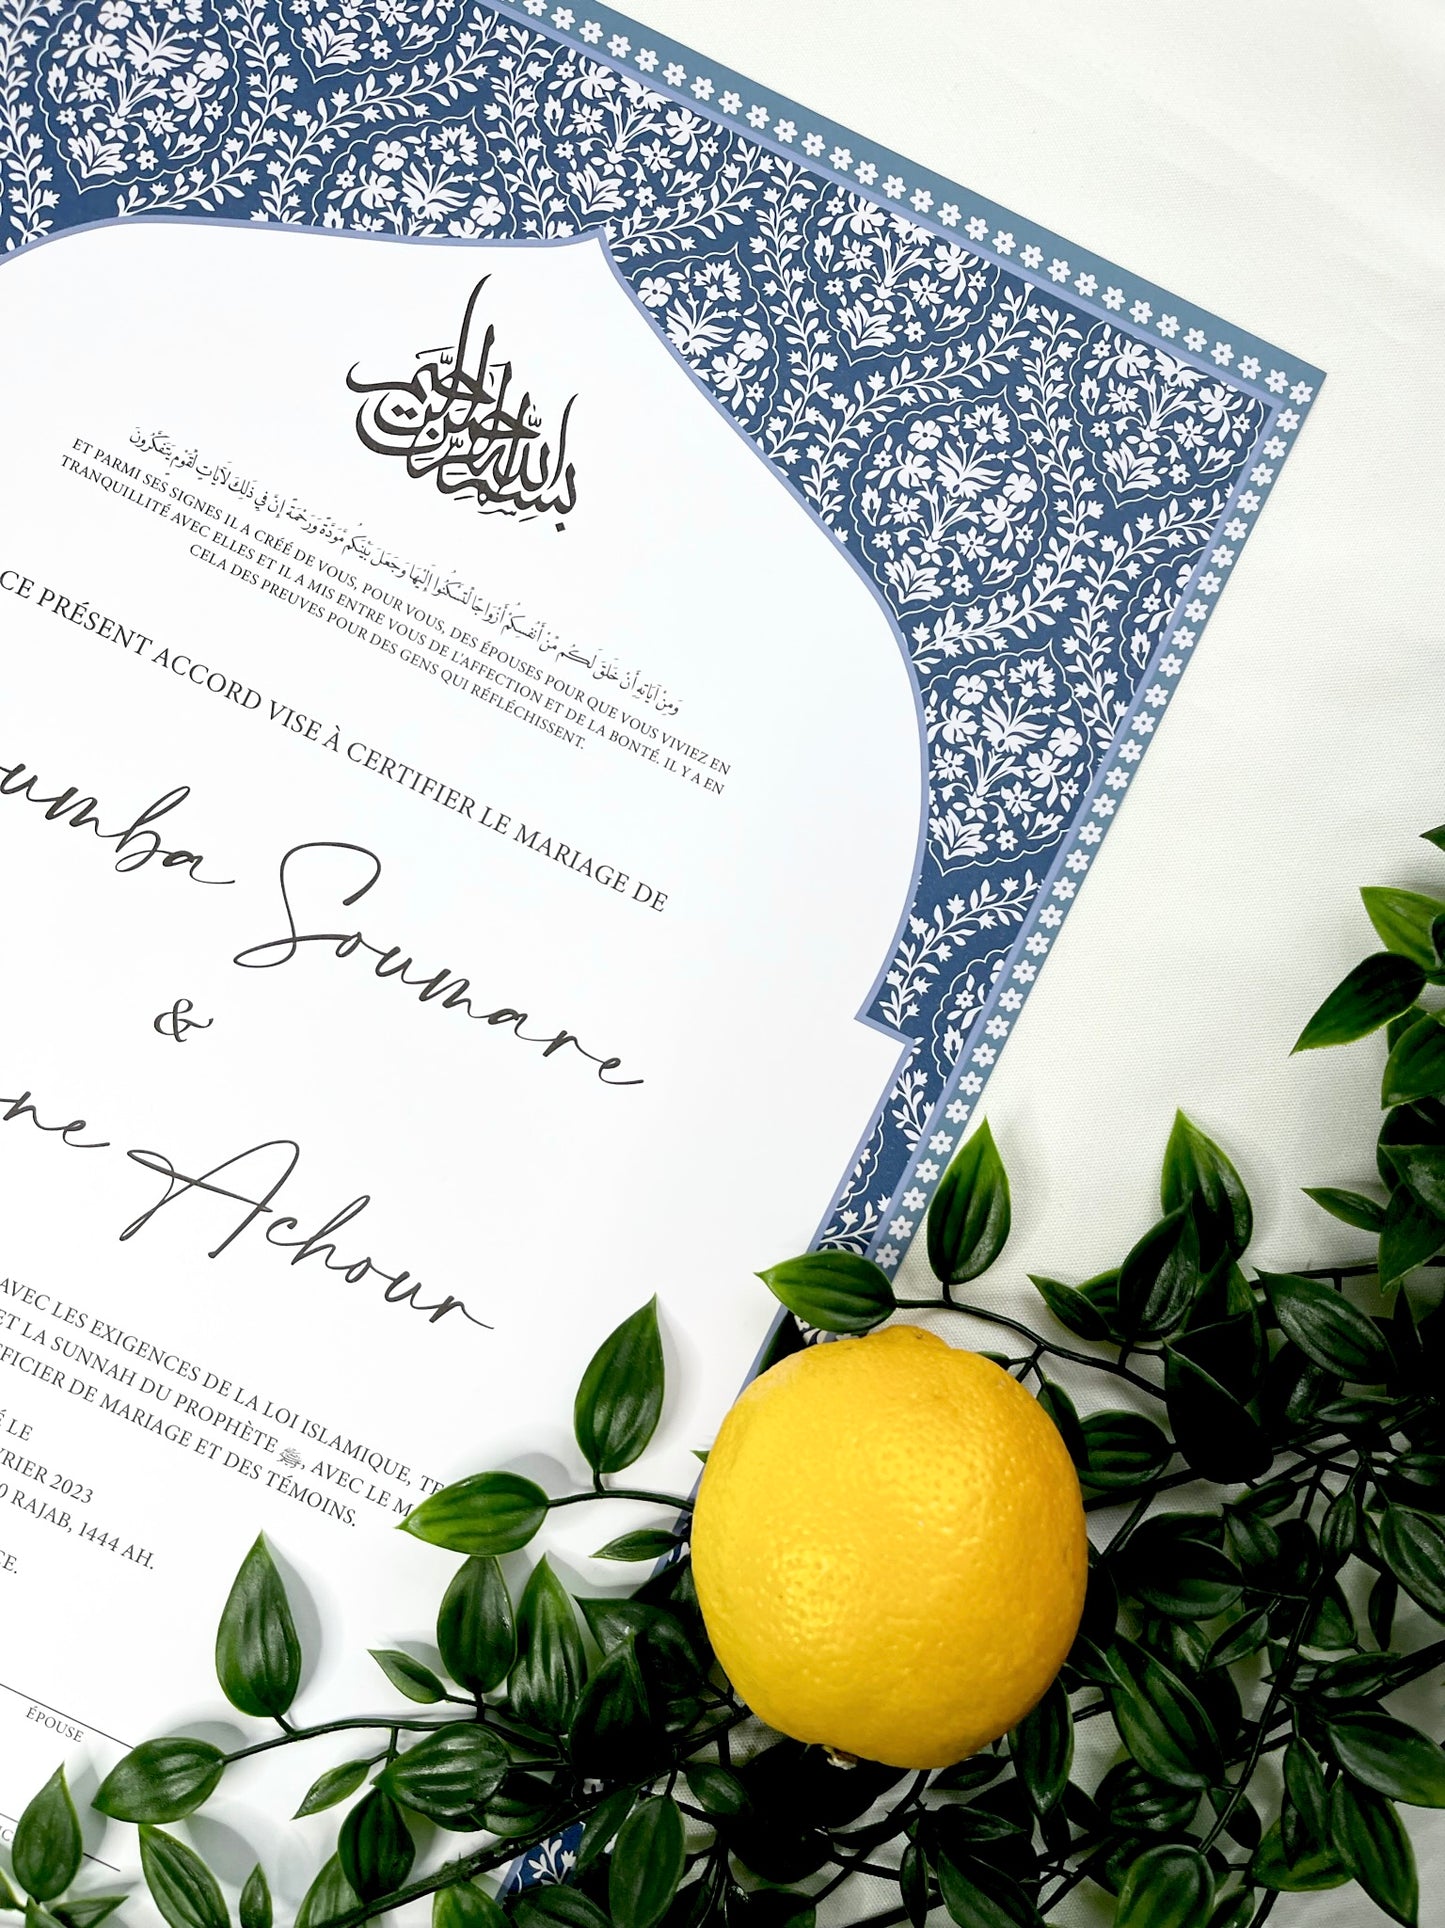 بسم الله الرحمن الرحيم
وَمِنْ آيَاتِهِ أَنْ خَلَقَ لَكُم مِّنْ أَنفُسِكُمْ أَزْوَاجًا لِّتَسْكُنُوا إِلَيْهَا وَجَعَلَ بَيْنَكُم مَّوَدَّةً وَرَحْمَةً إِنَّ فِي ذَلِكَ لَآيَاتٍ لِّقَوْمٍ يَتَفَكَّرُونَ
ET PARMI SES SIGNES IL A CRÉÉ DE VOUS, POUR VOUS, DES ÉPOUSES POUR QUE VOUS VIVIEZ EN
TRANQUILLITÉ AVEC ELLES ET IL A MIS ENTRE VOUS DE L'AFFECTION ET DE LA BONTÉ. IL Y A EN
CELA DES PREUVES POUR DES GENS QUI RÉFLÉCHISSENT.
CE PRÉSENT ACCORD VISE À CERTIFIER LE MARIAGE DE
oumba Soumare
&
ne Achour
AVEC LES EXIGENCES DE LA LOI ISLAMIQUE, TE
ET LA SUNNAH DU PROPHÈTE ﷺ, AVEC LE M
FFICIER DE MARIAGE ET DES TÉMOINS.
É LE
VRIER 2023
0 RAJAB, 1444 AH.
CE.
ÉPOUSE